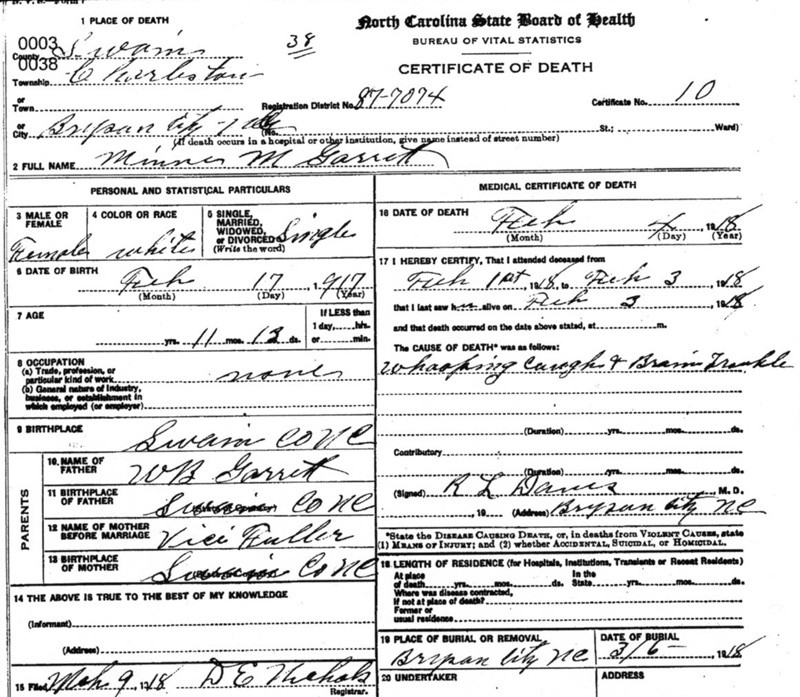 1 PLACE OF DEATH
North Carolina State Board of Health
BUREAU OF VITAL STATISTICS
CERTIFICATE OF DEATH
0003
County Swain
38
0038
Township Charleston
or
Town
Registration District No. 87-7074
Certificate No. 10
or
City Bryson City
(No.
St.;
Ward)
(If death occurs in a hospital or other institution, give name instead of street number)
2 FULL NAME Minnie M Garrett
PERSONAL AND STATISTICAL PARTICULARS
3 MALE OR FEMALE
Female
4 COLOR OR RACE
white
5 SINGLE, MARRIED, WIDOWED, or DIVORCED
(Write the word)
Single
6 DATE OF BIRTH
Feb 17, 1917
(Month) (Day) (Year)
7 AGE
yrs. 11 mos. 13 ds.
If LESS than
1 day, hrs.
or min.
8 OCCUPATION
(a) Trade, profession, or
particular kind of work none
(b) General nature of industry,
business, or establishment in
which employed (or employer)
9 BIRTHPLACE
Swain CO NC
PARENTS
10 NAME OF FATHER
WB Garrett
11 BIRTHPLACE OF FATHER
Swain CO NC
12 NAME OF MOTHER BEFORE MARRIAGE
Vici Fuller
13 BIRTHPLACE OF MOTHER
Swain CO NC
14 THE ABOVE IS TRUE TO THE BEST OF MY KNOWLEDGE
(Informant)
(Address)
15 Filed Mch 9 1918 D E Nichols
Registrar.
MEDICAL CERTIFICATE OF DEATH
16 DATE OF DEATH
Feb 4 1918
(Month) (Day) (Year)
17 I HEREBY CERTIFY, That I attended deceased from
Feb 1st, 1918, to Feb 3, 1918
that I last saw her alive on Feb 3, 1918
and that death occurred on the date above stated, at m.
The CAUSE OF DEATH* was as follows:
Whooping Cough & Brain Trouble
(Duration) yrs. mos. ds.
Contributory
(Duration) yrs. mos. ds.
(Signed) R L Davis M. D.
, 19 (Address) Bryson City NC
*State the DISEASE CAUSING DEATH, or, in deaths from VIOLENT CAUSES, state
(1) MEANS OF INJURY; and (2) whether ACCIDENTAL, SUICIDAL, or HOMICIDAL.
18 LENGTH OF RESIDENCE (for Hospitals, Institutions, Transients or Recent Residents)
At place
of death yrs. mos. ds.
In the
State yrs. mos. ds.
Where was disease contracted,
if not at place of death?
Former or
usual residence
19 PLACE OF BURIAL OR REMOVAL
Bryson City NC
DATE OF BURIAL
3/6 - 1918
20 UNDERTAKER
ADDRESS